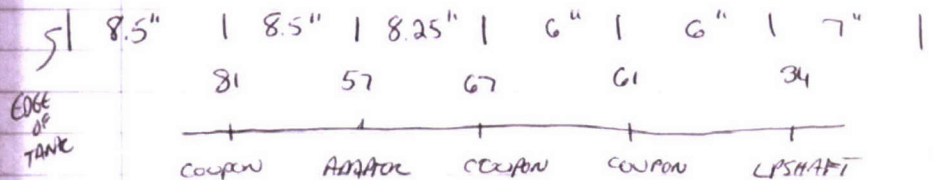 8.5" | 8.5" | 8.25" | 6" | 6" | 7" |
81 57 67 61 34
EDGE
OF
TANK
COUPON ADAPTOR COUPON COUPON LPSHAFT